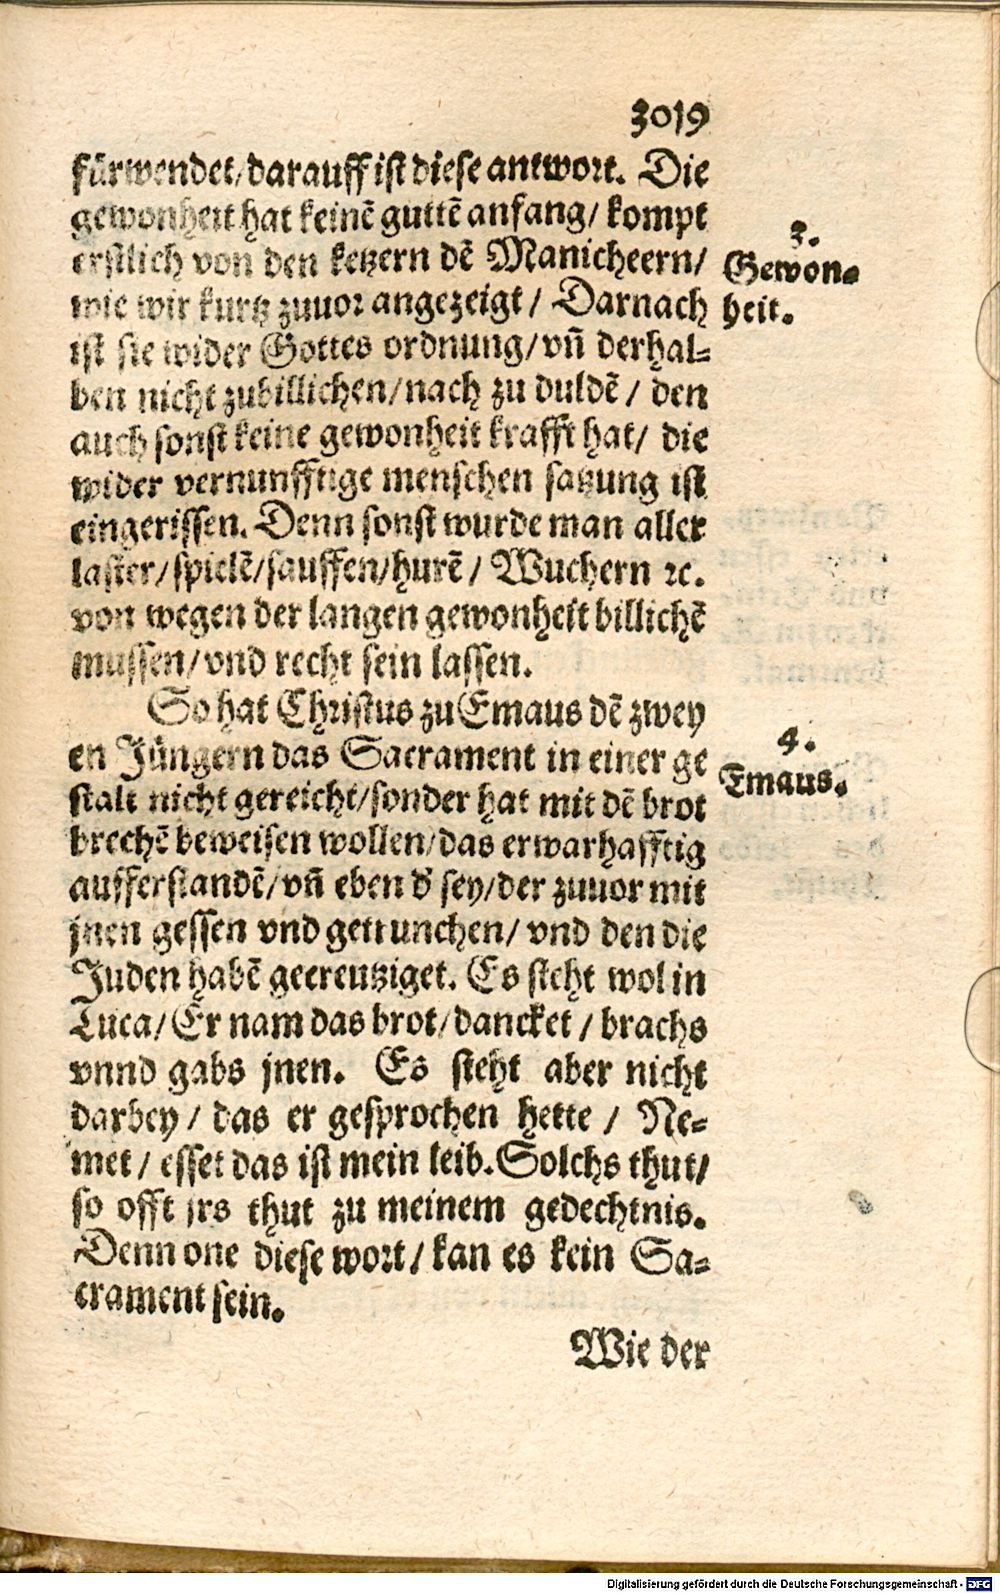 3019
fürwendet/darauff ist diese antwort. Die
gewonheit hat keinē guttē anfang/ kompt
erstlich von den ketzern dē Manicheern/
wie wir kurtz zuuor angezeigt / Darnach
ist sie wider Gottes ordnung/vn̄ derhal-
ben nicht zubillichen/nach zu duldē / den
auch sonst keine gewonheit krafft hat/ die
wider vernunfftige menschen satzung ist
eingerissen. Denn sonst wurde man aller
laster/spielē/sauffen/hurē / Wuchern ꝛc.
von wegen der langen gewonheit billichē
mussen/vnd recht sein lassen.
3.
Gewon-
heit.
So hat Christus zu Emaus dē zwey
en Jüngern das Sacrament in einer ge
stalt nicht gereicht/sonder hat mit dē brot
brechē beweisen wollen/das er warhafftig
aufferstandē/vn̄ eben d' sey/der zuuor mit
jnen gessen vnd getrunchen/ vnd den die
Juden habē gecreutziget. Es steht wol in
Luca/ Er nam das brot/dancket / brachs
vnnd gabs jnen. Es steht aber nicht
darbey / das er gesprochen hette / Ne-
met / esset das ist mein leib. Solchs thut/
so offt jrs thut zu meinem gedechtnis.
Denn one diese wort / kan es kein Sa-
crament sein.
4.
Emaus.
Wie der
Digitalisierung gefördert durch die Deutsche Forschungsgemeinschaft - DFG